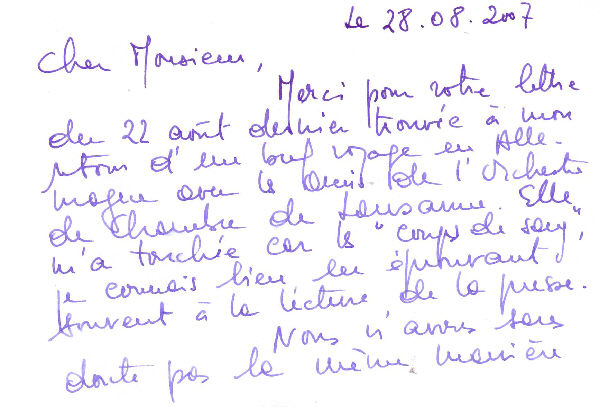 Le 28.08.2007
Cher Monsieur,
Merci pour votre lettre
du 22 août dernier trouvée à mon
retour d'un bref voyage en Alle-
magne avec les Amis de l'Orchestre
de Chambre de Lausanne. Elle
m'a touchée car les "coups de sang",
je connais bien en éprouvant
souvent à la lecture de la presse.
Nous n'avons sans
doute pas la même manière